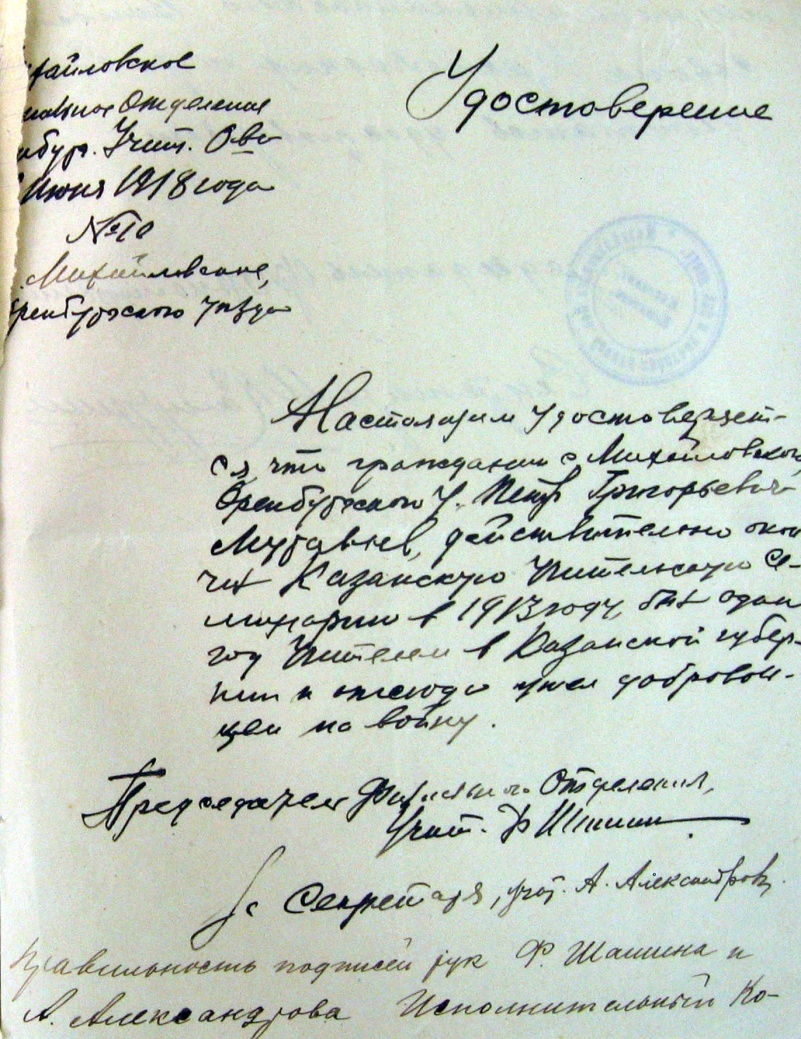 Михайловское
Отделение
Учит. О-ва
Июня 1918 года
№ 10
Михайловское,
Оренбургского уезда
Удостоверение
Настоящим удостоверяет-
ся что гражданин с. Михайловского,
Оренбургского у. Петр Григорьевич
Муравьев, действительно окон
чил Казанскую Учительскую Се-
минарию в 1913 году, был один
год Учителем в Казанской губер-
нии и отсюда ушел добровол-
цем на войну.
Председатель Филиального Отделения,
Учит. Ф Шашин
За Секретаря, уч. А. Александров.
Правильность подписей рук Ф. Шашина и
А. Александрова Исполнительный Ко-